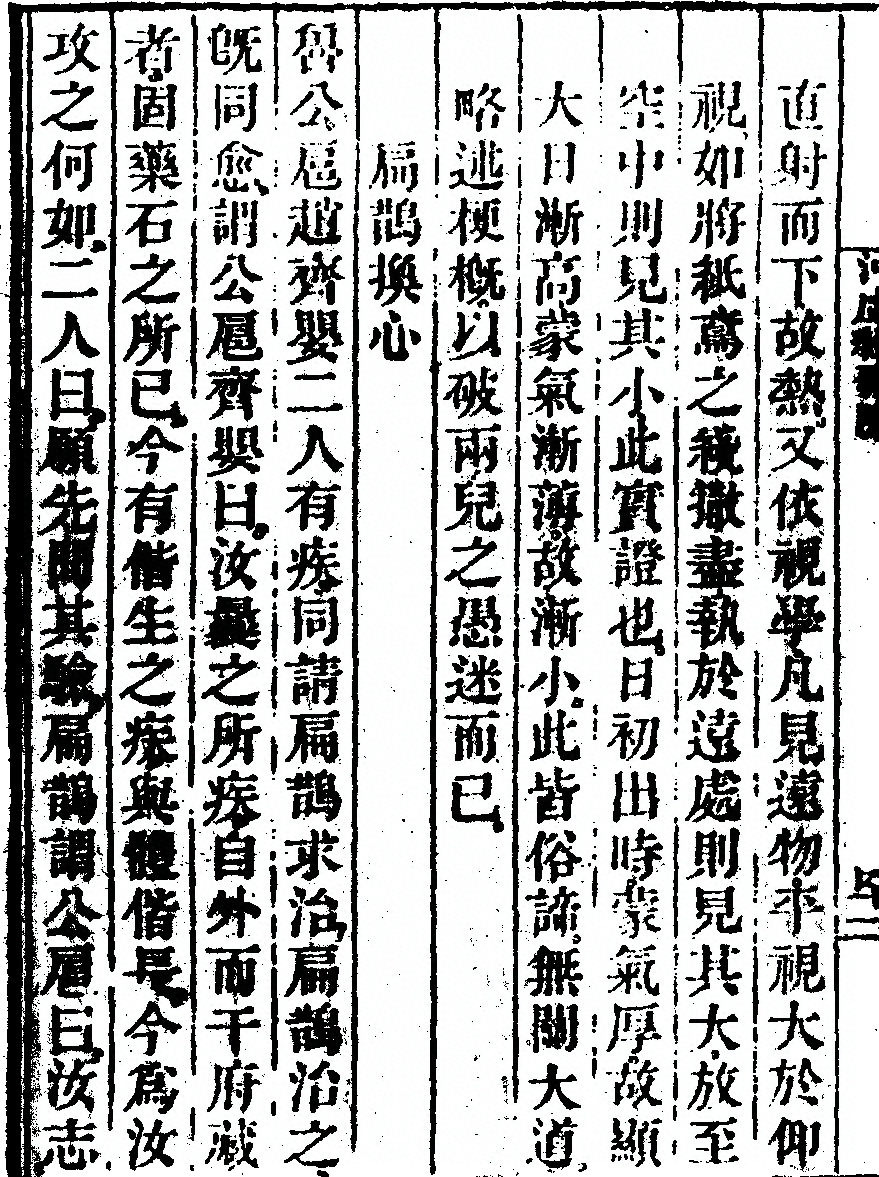 直射而下故熱又依視學凡見遠物平視大於仰
視如將紙鳶之綫撒盡執於遠處則見其大放至
空中則見其小此實證也日初出時蒙氣厚故顯
大日漸高蒙氣漸薄故漸小此皆俗諦無關大道
略述梗槪以破兩兒之愚迷而已
扁鵲換心
魯公扈趙齊嬰二人有疾同請扁鵲求治扁鵲治之
旣同愈謂公扈齊嬰曰汝曩之所疾自外而干府藏
者固藥石之所已今有偕生之疾與體偕長今爲汝
攻之何如二人曰願先聞其驗扁鵲謂公扈曰汝志